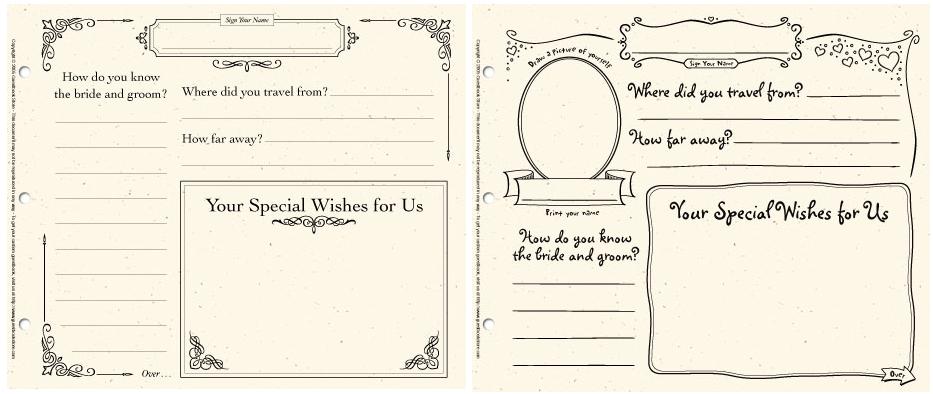 Sign Your Name
How do you know
the bride and groom?
Where did you travel from?
How far away?
Your Special Wishes for Us
Over...
Draw a Picture of yourself
Sign Your Name
Where did you travel from?
How far away?
Print your name
Your Special Wishes for Us
How do you know
the bride and groom?
Over